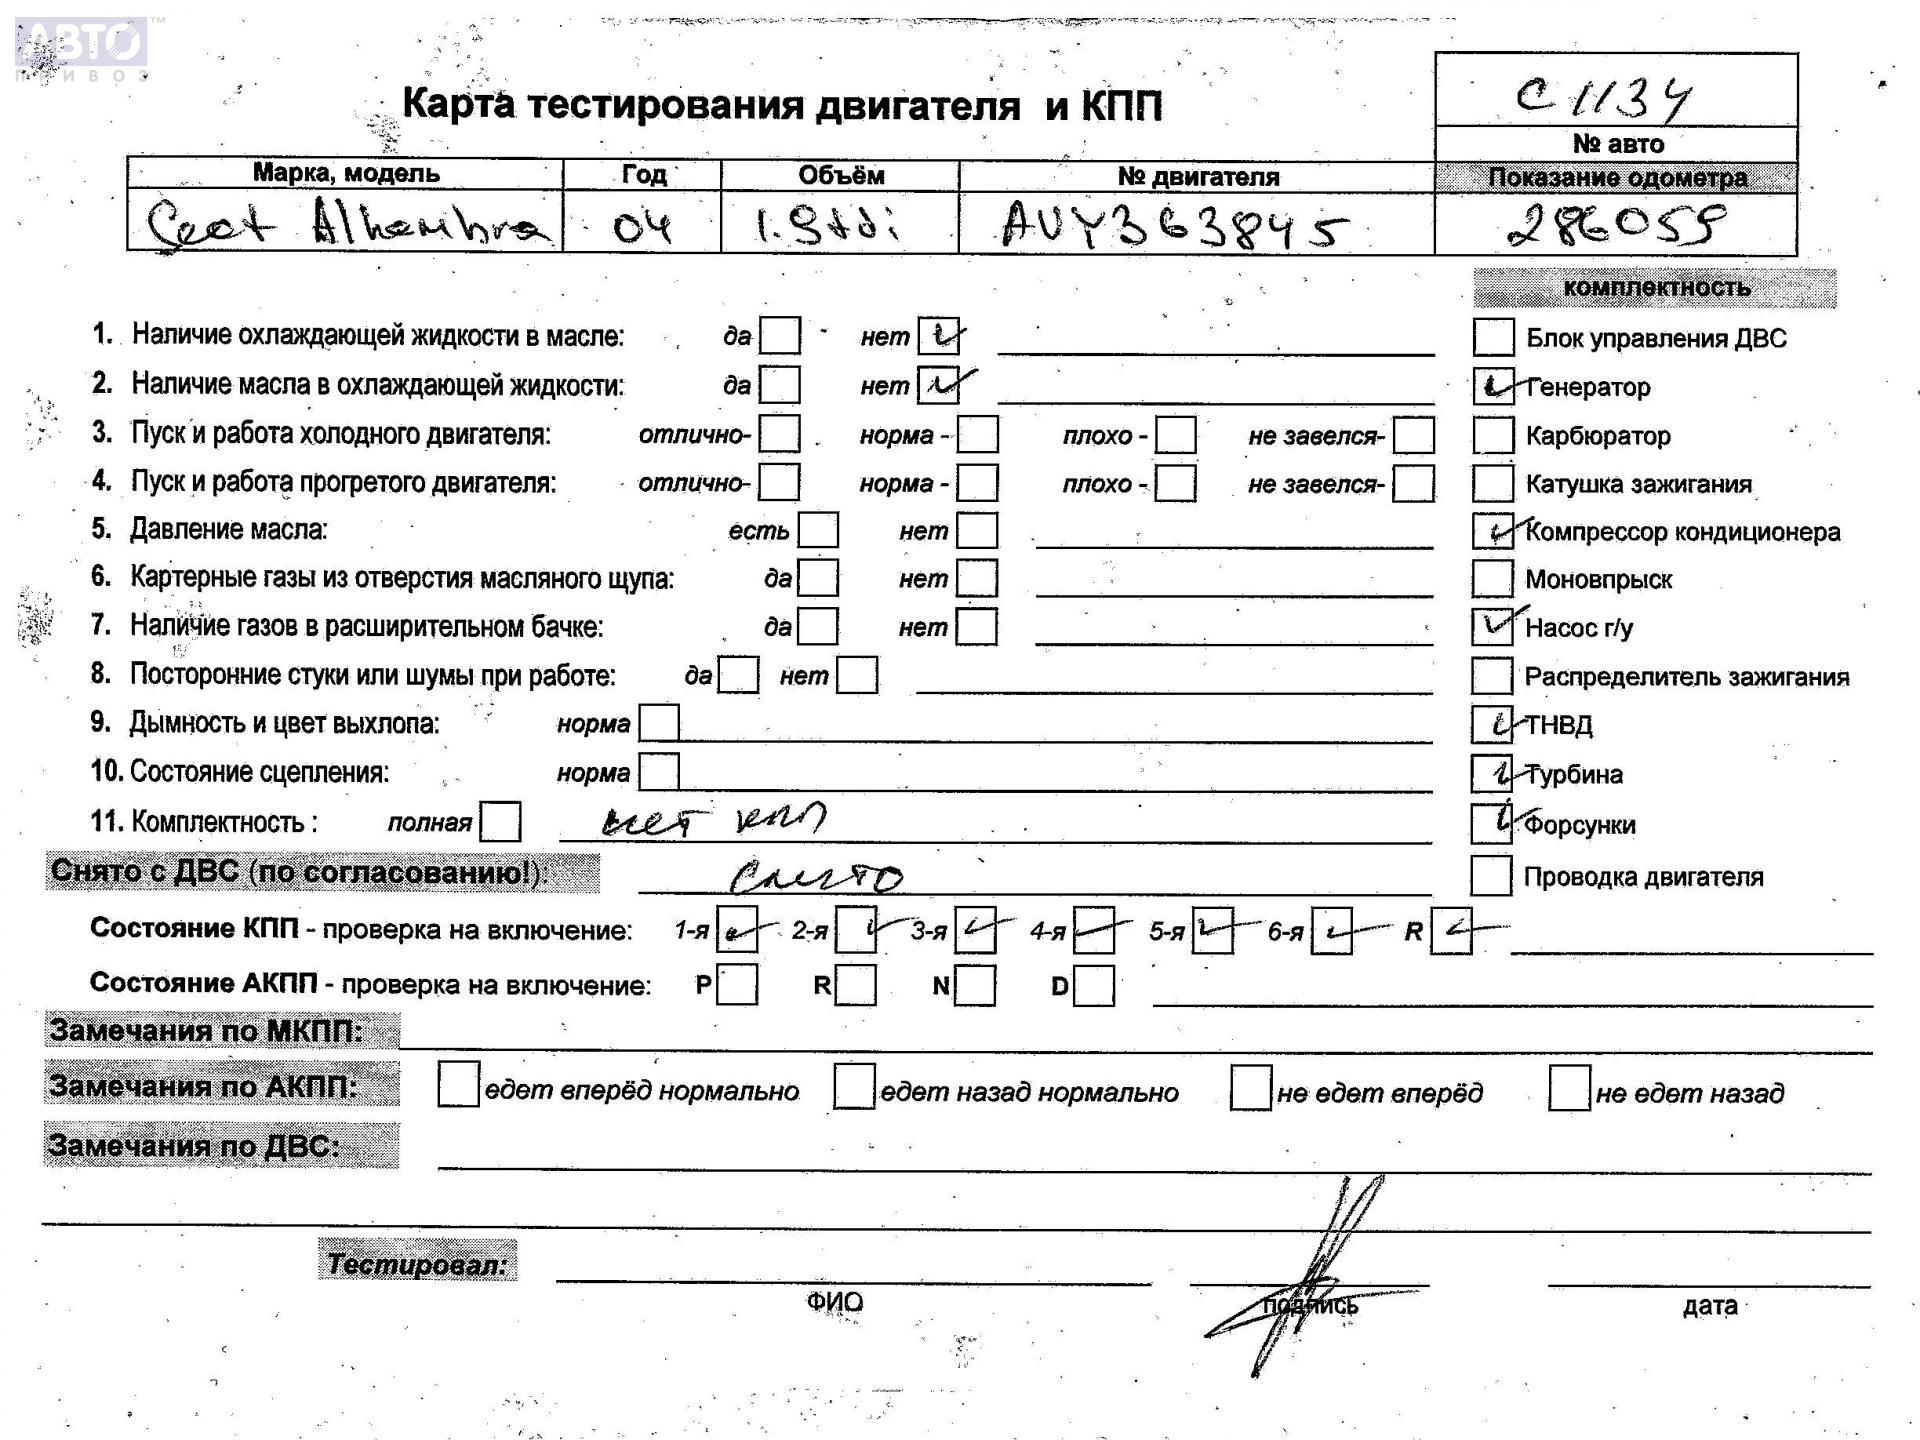 АВТО™
ПРИВОЗ
Карта тестирования двигателя и КПП
С1134
№ авто
Марка, модель Год Объём № двигателя Показание одометра
Сеат Alhambra 04 1.9tdi AUY363845 286059
комплектность
1. Наличие охлаждающей жидкости в масле: да нет Блок управления ДВС
2. Наличие масла в охлаждающей жидкости: да нет Генератор
3. Пуск и работа холодного двигателя: отлично- норма - плохо - не завелся- Карбюратор
4. Пуск и работа прогретого двигателя: отлично- норма - плохо - не завелся- Катушка зажигания
5. Давление масла: есть нет Компрессор кондиционера
6. Картерные газы из отверстия масляного щупа: да нет Моновпрыск
7. Наличие газов в расширительном бачке: да нет Насос г/у
8. Посторонние стуки или шумы при работе: да нет Распределитель зажигания
9. Дымность и цвет выхлопа: норма ТНВД
10. Состояние сцепления: норма Турбина
11. Комплектность : полная нет кпп Форсунки
Снято с ДВС (по согласованию!): Проводка двигателя
Состояние КПП - проверка на включение: 1-я 2-я 3-я 4-я 5-я 6-я R
Состояние АКПП - проверка на включение: P R N D
Замечания по МКПП:
Замечания по АКПП: едет вперёд нормально едет назад нормально не едет вперёд не едет назад
Замечания по ДВС:
Тестировал:
ФИО подпись дата